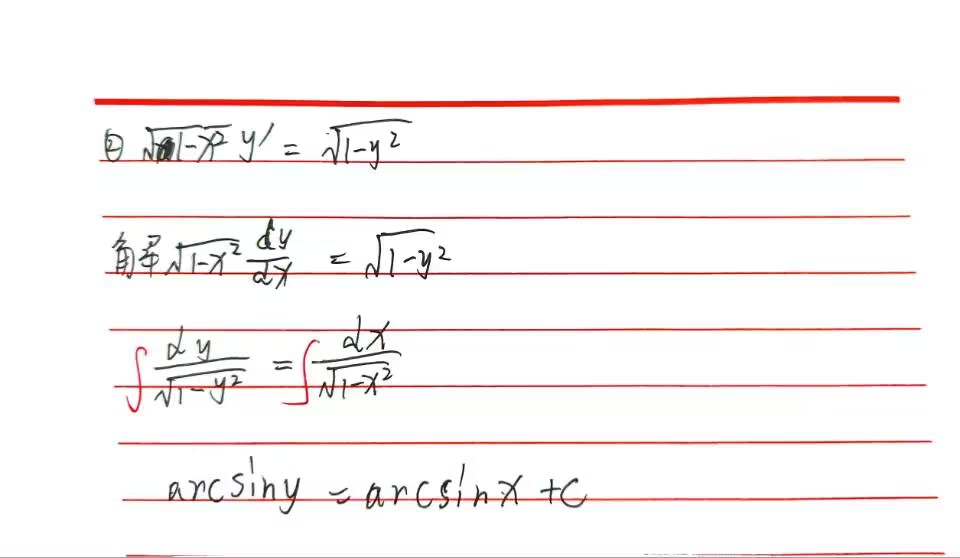 ② √1-x² y′ = √1-y²
解 √1-x² dy/dx = √1-y²
∫ dy/√1-y² = ∫ dx/√1-x²
arcsiny = arcsinx + C